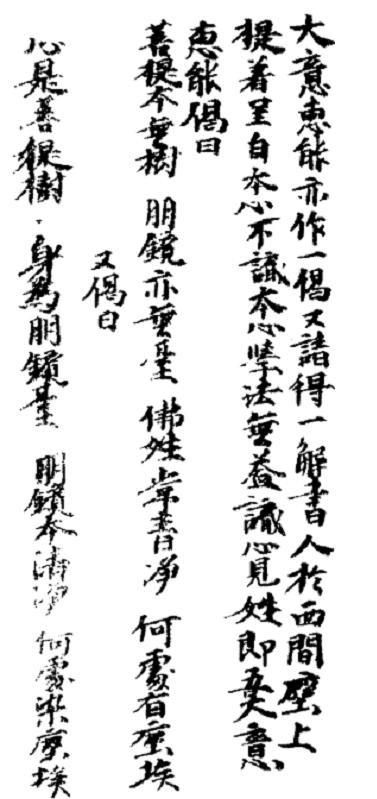 大意惠能亦作一偈又請得一解書人於西間壁上
提着呈自本心不識本心學法無益識心見姓即吾大意
惠能偈曰
菩提本無樹 明鏡亦無臺 佛姓常青淨 何處有塵埃
又偈曰
心是菩提樹 身為明鏡臺 明鏡本清淨 何處染塵埃